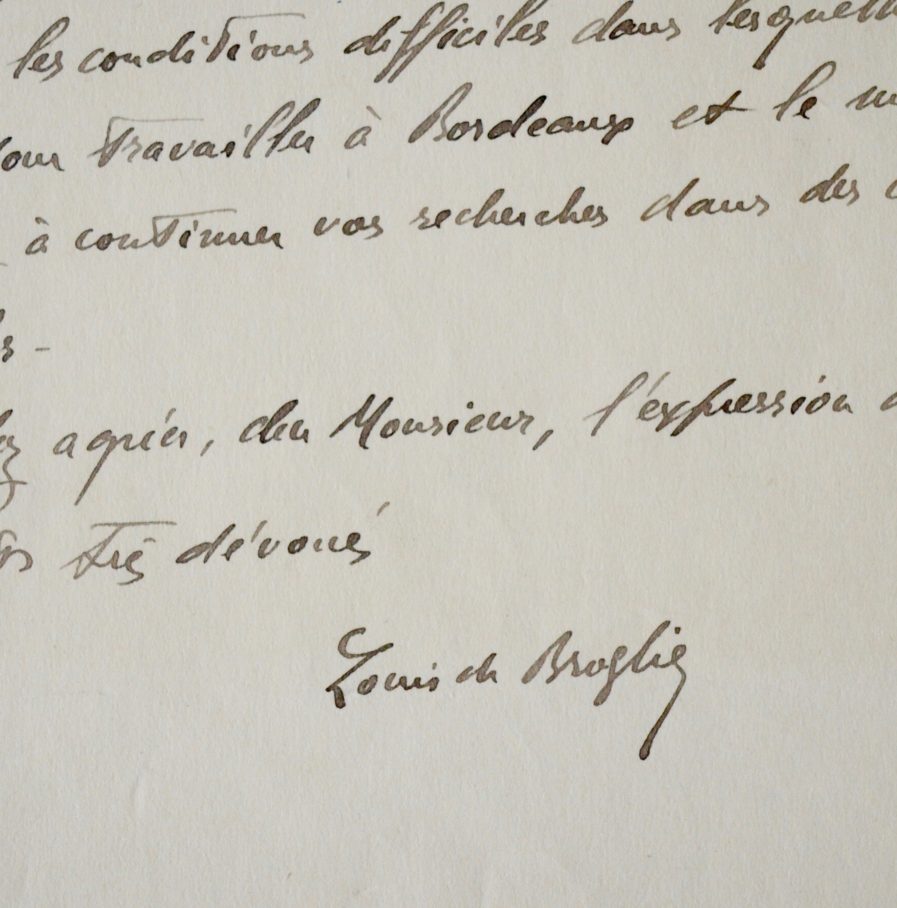 les conditions difficiles dans lesquell
our travailler à Bordeaux et le m
à continuer vos recherches dans des c
s -
ez agréer, cher Monsieur, l'expression d
ts très dévoués
Louis de Broglie